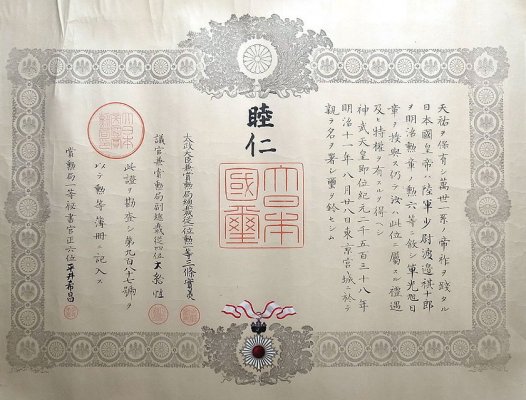 天祐ヲ保有シ萬世一系ノ帝祚ヲ踐タル
日本國皇帝ハ陸軍少尉波邉祺十郎
ヲ明治勲章ノ勲六等ニ敘シ單光旭日
章ヲ授與ス仍テ汝ハ此位ニ屬スル禮遇
及ヒ特權ヲ有スルヲ得ヘシ
神武天皇即位紀元二千五百三十八年
明治十一年八月廿八日東京宮城ニ於テ
親ラ名ヲ署シ璽ヲ鈐セシム
睦仁
大日本國璽
太政大臣兼賞勲局總裁從一位勲一等三條實美
議官兼賞勲局副總裁從四位大給恒
此證ヲ勘查シ第九百八十七號ヲ
以テ勲等簿冊ニ記入ス
賞勲局一等秘書官正六位平井希昌